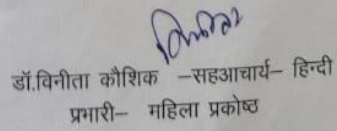 विनीता
डॉ.विनीता कौशिक –सहआचार्य– हिन्दी
प्रभारी– महिला प्रकोष्ठ